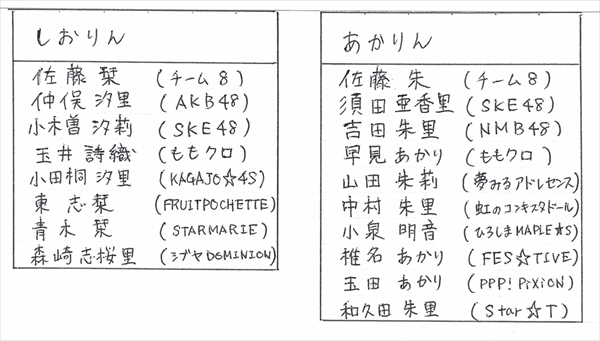 しおりん
佐藤 栞 (チーム8)
仲俣 汐里 (AKB48)
小木曽 汐莉 (SKE48)
玉井 詩織 (ももクロ)
小田桐 汐里 (KAGAJO☆4S)
東 志栞 (FRUITPOCHETTE)
青木 栞 (STARMARIE)
森崎志桜里 (シブヤDOMINION)
あかりん
佐藤 朱 (チーム8)
須田 亜香里 (SKE48)
吉田 朱里 (NMB48)
早見 あかり (ももクロ)
山田 朱莉 (夢みるアドレセンス)
中村 朱里 (虹のコンキスタドール)
小泉 明音 (ひろしまMAPLE★S)
椎名 あかり (FES☆TIVE)
玉田 あかり (PPP! PiXiON)
和久田 朱里 (Star☆T)